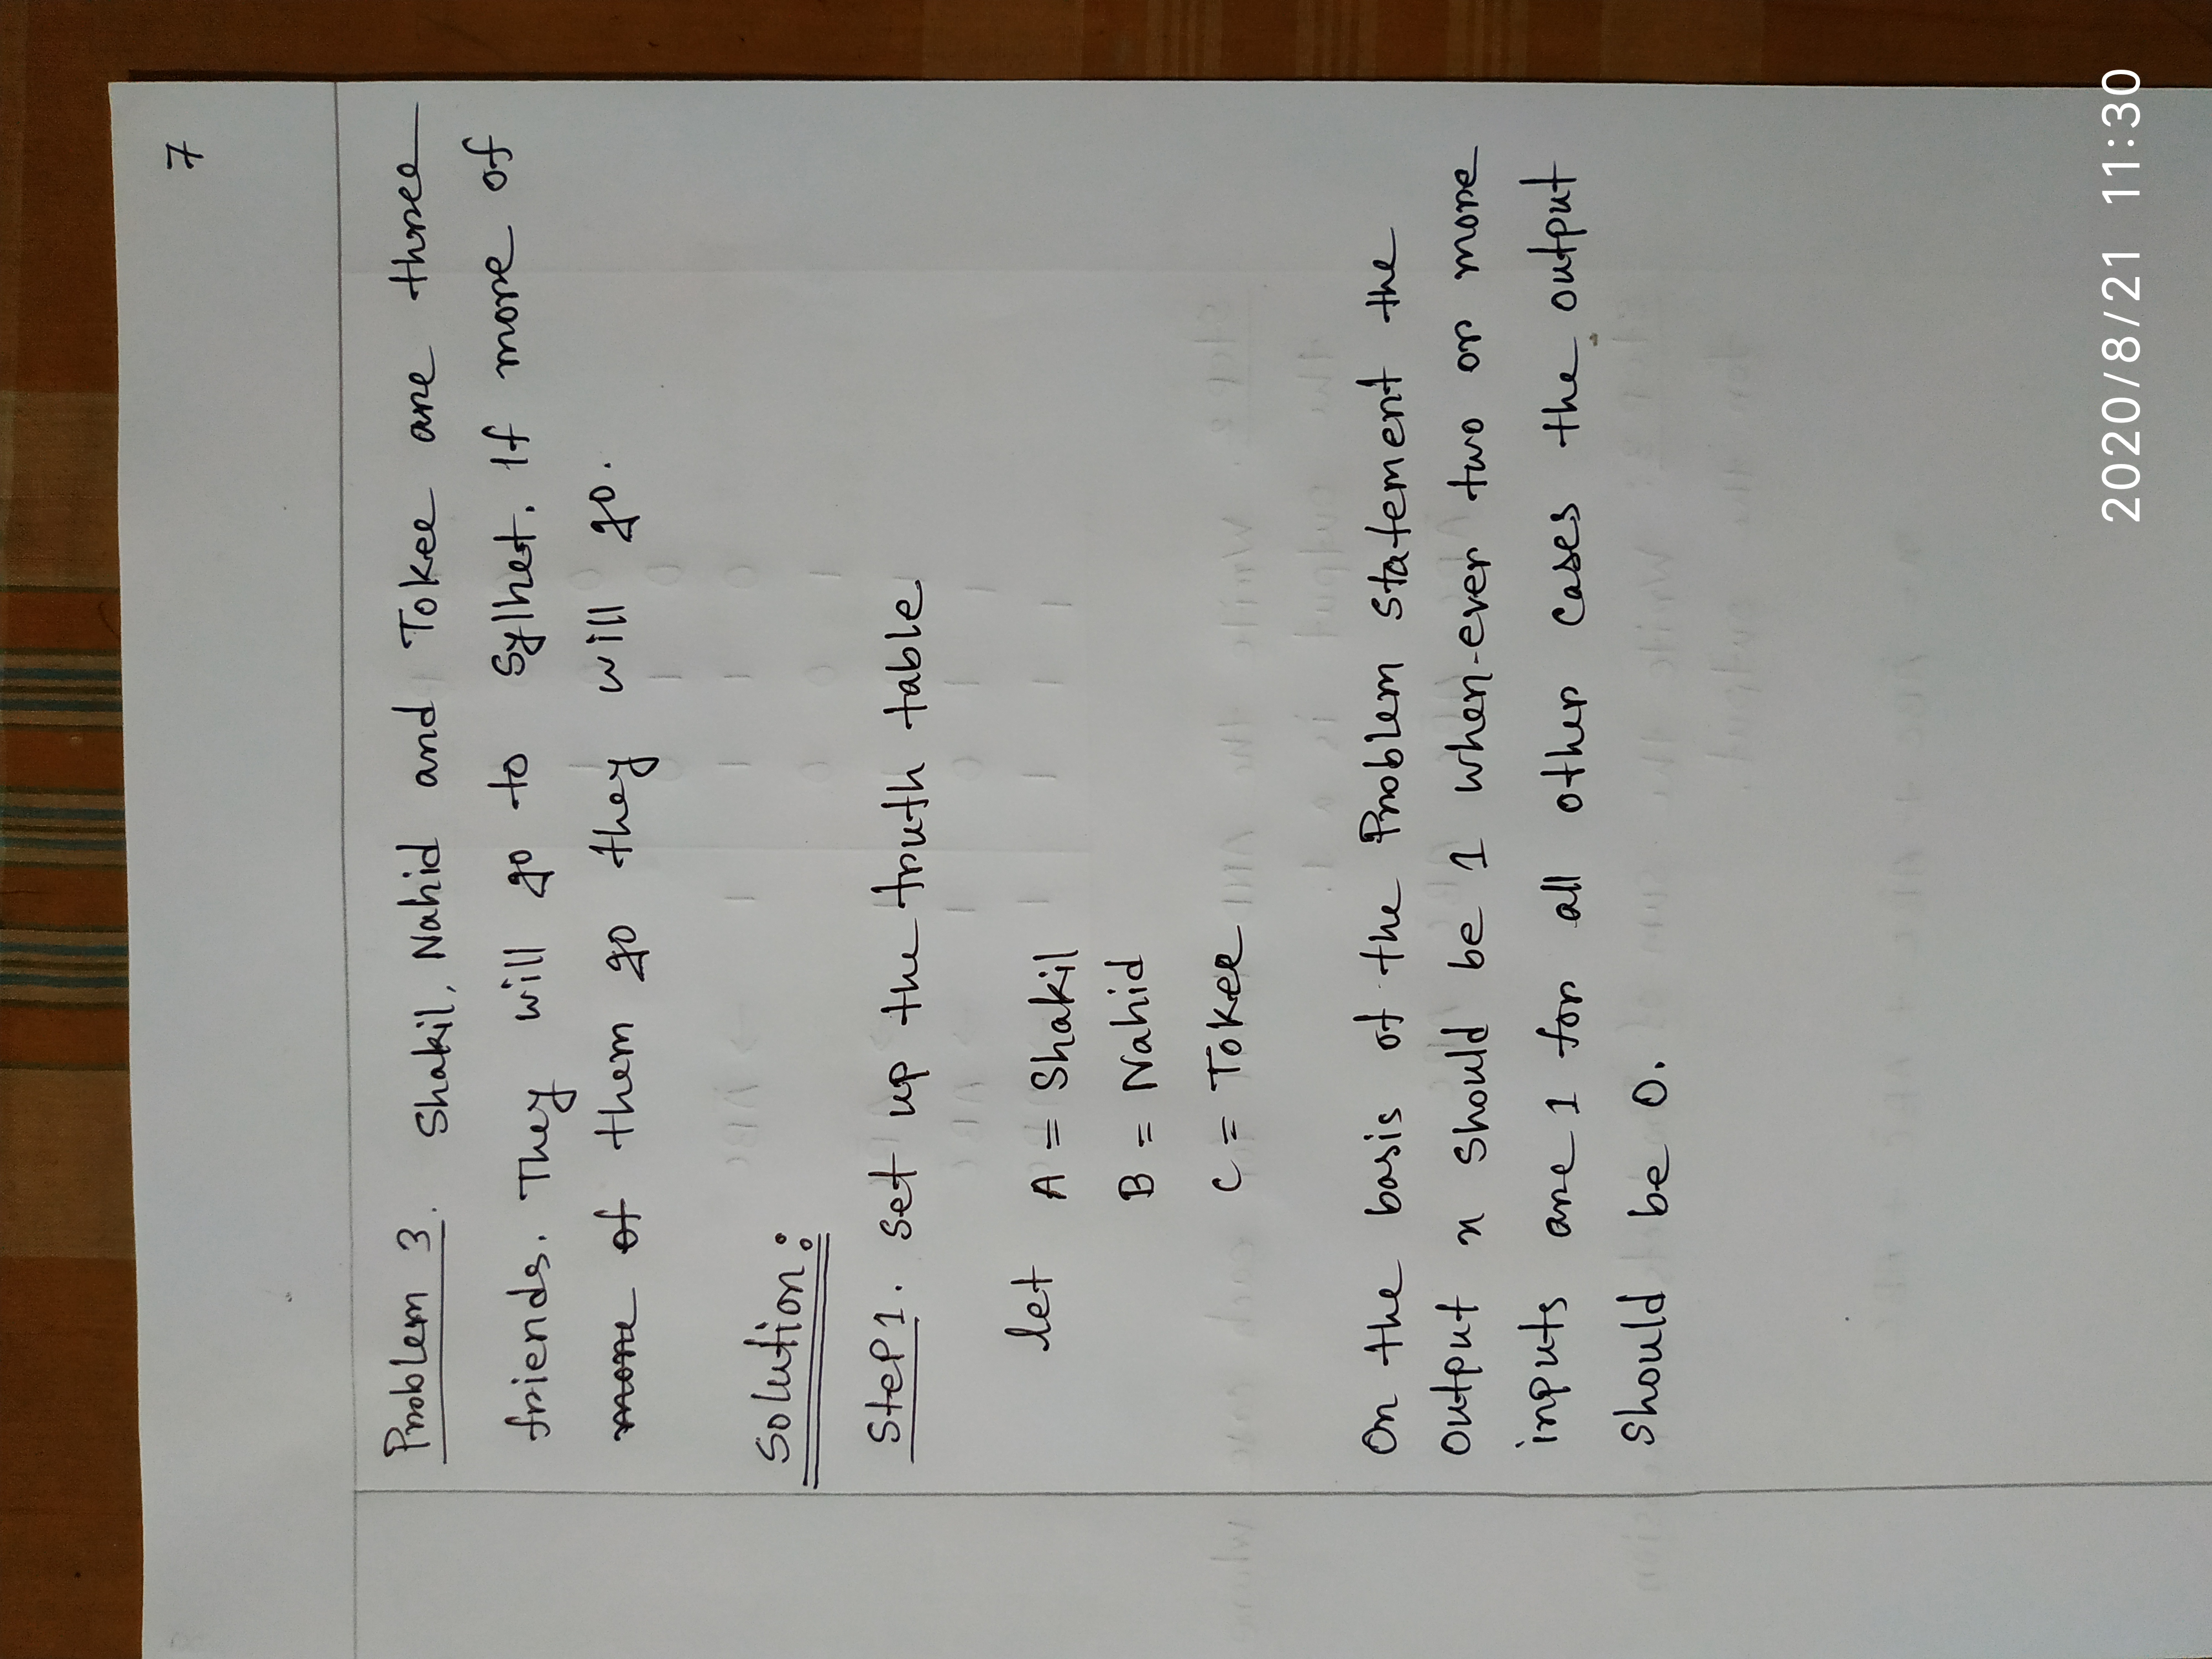 7
Problem 3. Shakil, Nahid and Tokee are three
friends. They will go to Sylhet. If more of
more of them go they will go.
Solution:
Step 1. Set up the truth table
let A = Shakil
B = Nahid
C = Tokee
On the basis of the Problem statement the
output x should be 1 when-ever two or more
inputs are 1 for all other cases the output
should be 0.
2020/8/21 11:30